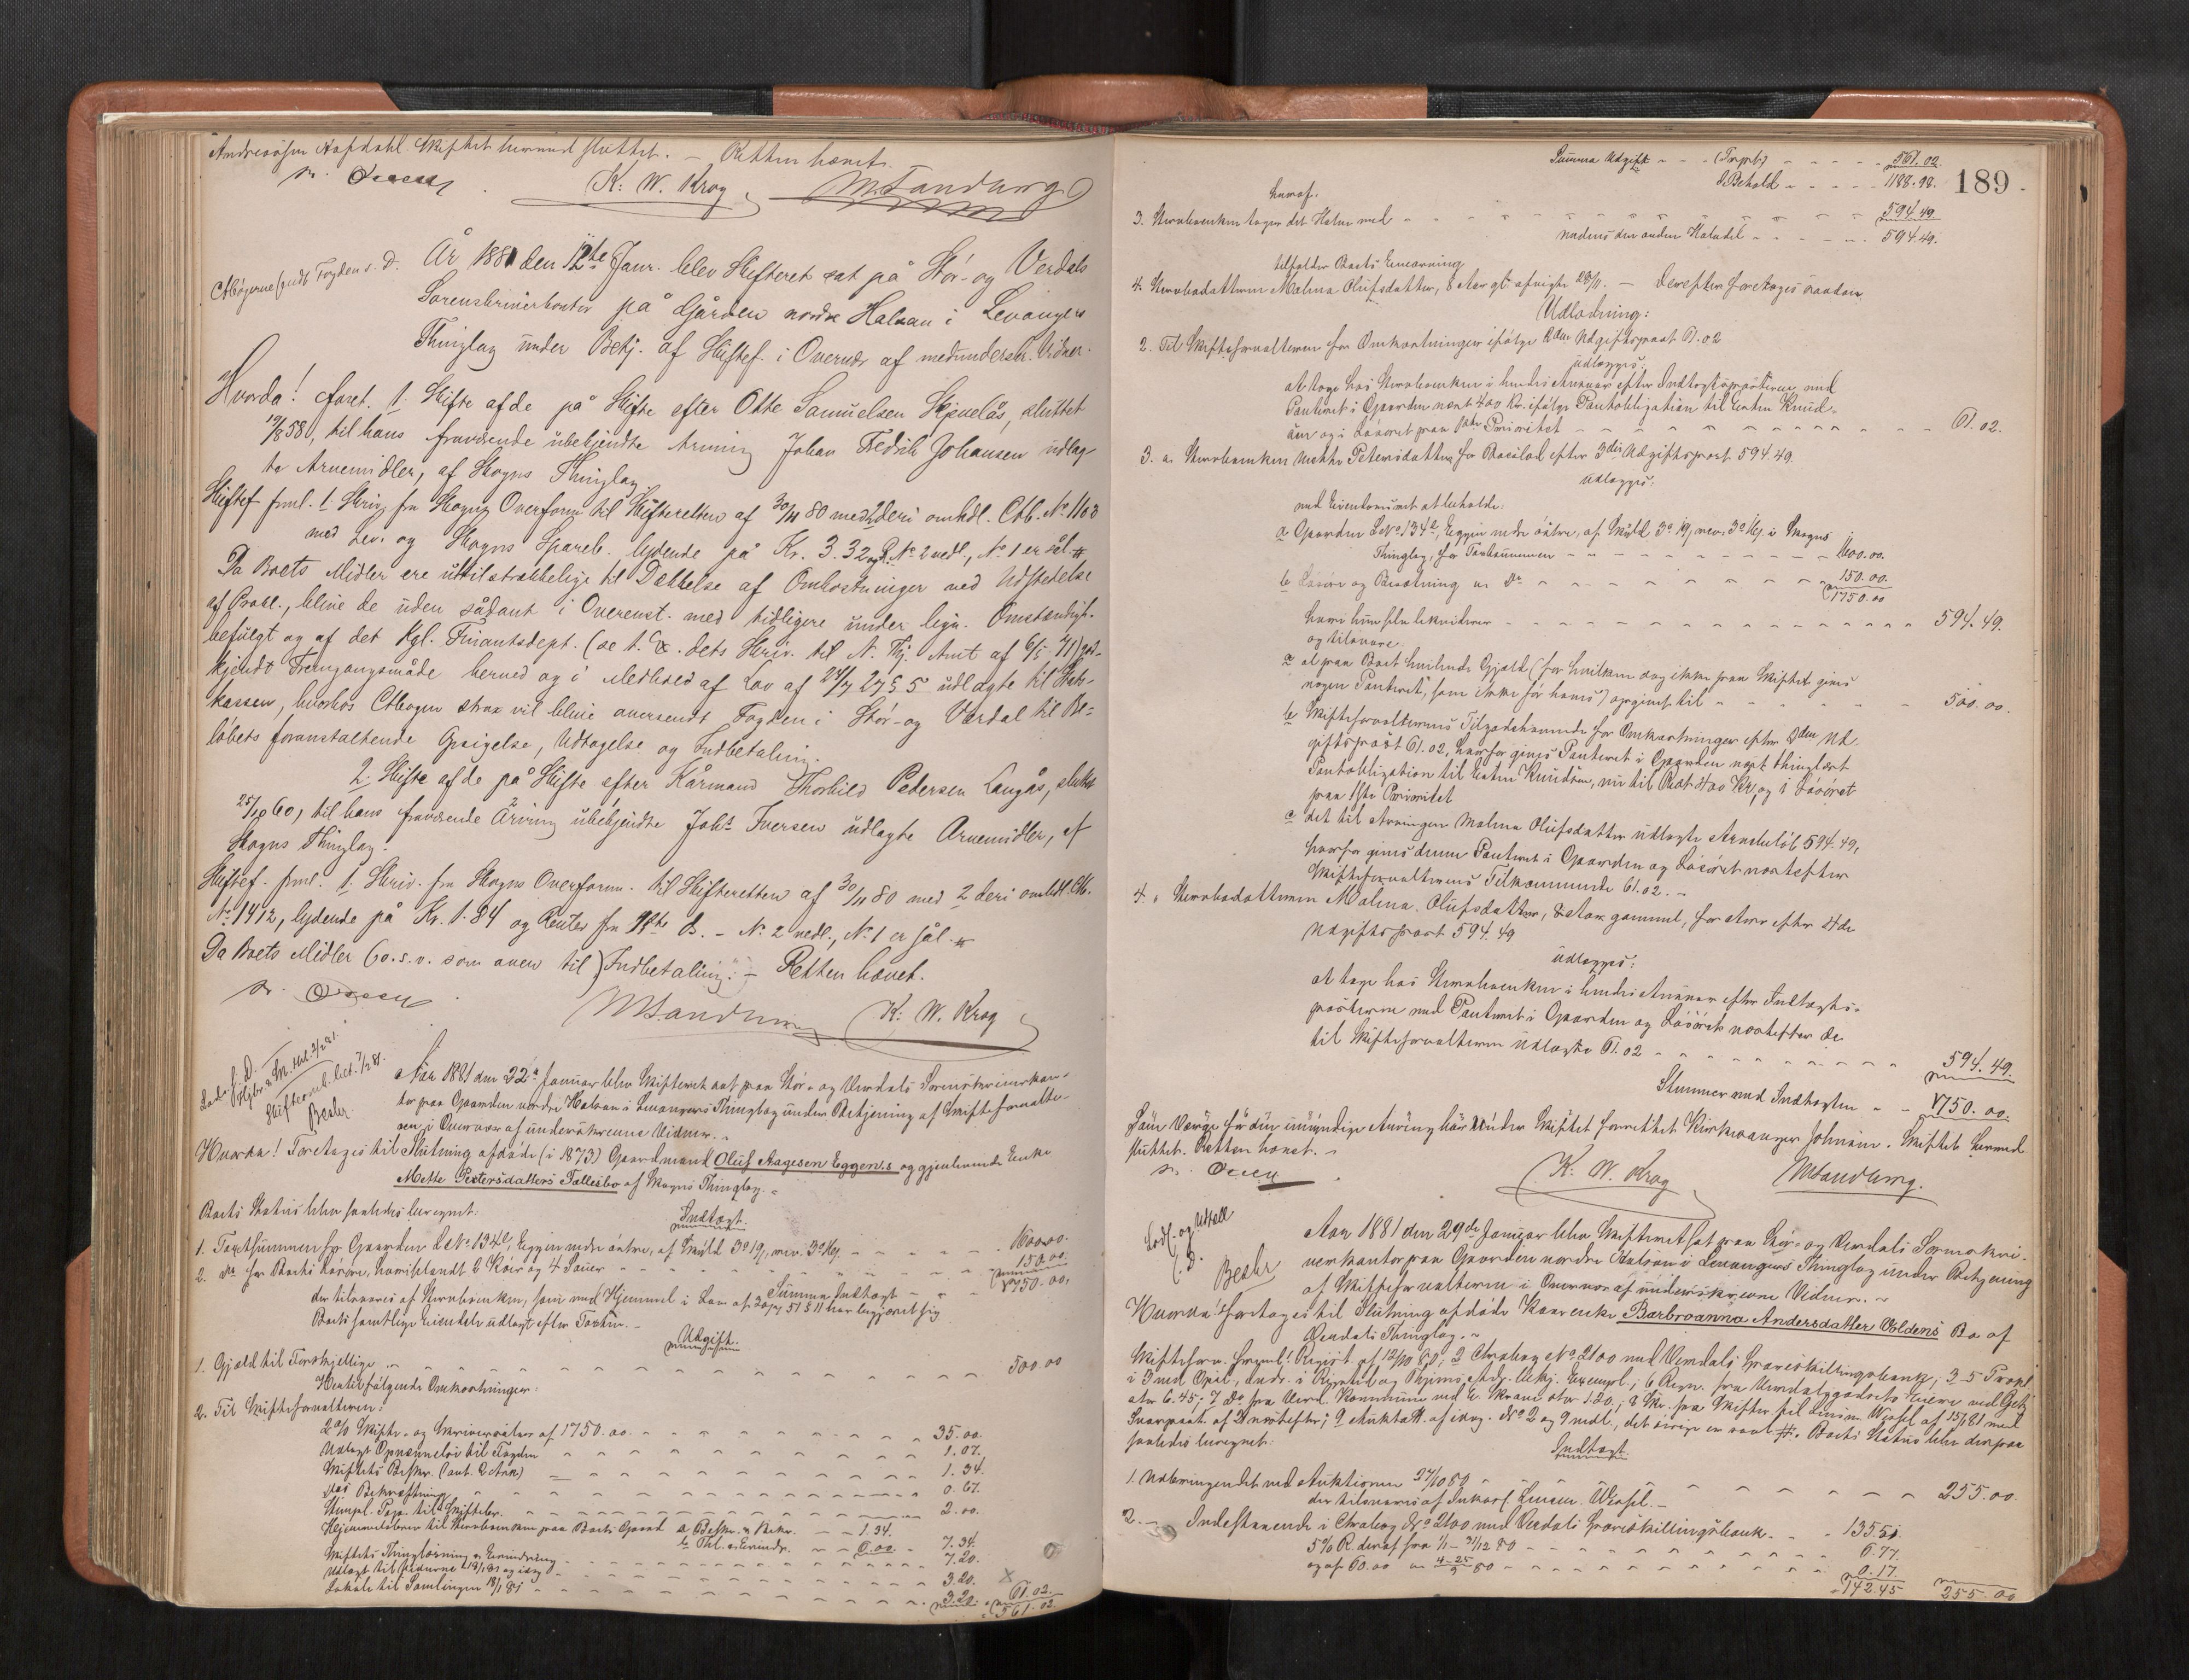 Andreasøn Hofdahl. Skiftet hermed sluttet. – Retten hævet.
K. W. Krog MSandberg
Ctbøgerne sendt Fogden s. D.
År 1881 den 12te Janr. blev Skifteret sat på Stør- og Verdals
Sorenskriverkontor på Gården nordre Halsan i Levangers
Thinglag under Betj. af Skiftef. i Overvær af medunderskr. Vidner.
Hvorda! foret. 1. Skifte afde på Skifte efter Otte Samuelsen Skjenelås, sluttet
12/8 58, til hans fraværende ubekjendte Arving Johan Fredrik Johansen udlag-
te Arvemidler, af Skogns Thinglag.
Skiftef. freml. 1. Skriv. fra Skogns Overform. til Skifteretten af 30/11 80 med 2 deri omhdl. Ctb. No 1103
med Lev. og Skogns Spareb. lydende på Kr. 3.32 No 2 vedl., No 1 er sål. #
Da Boets Midler ere utilstrækkelige til Dækkelse af Omkostninger ved Udstedelse
af Procl., blive de uden sådant i Overenst. med tidligere under lign. Omstændigh.
befulgt og af det Kgl. Finantsdept. (se t. Ex. dets Skriv. til N. Thj. Amt af 6/5 71) god-
kjendt Fremgangsmåde herved og i Medhold af Lov af 24/7 27 § 5 udlagte til Stats-
kassen, hvorhos Ctbogen strax vil blive oversendt Fogden i Stør- og Værdal til Be-
løbets foranstaltende Opsigelse, Udtagelse og Indbetaling.
2. Skifte afde på Skifte efter Kårmand Thorkild Pedersen Langås, sluttet
25/10 60, til hans fraværende Arving ubekjendte Johs Iversen udlagte Arvemidler, af
Skogns Thinglag.
Skiftef. freml. 1. Skriv. fra Skogns Overform. til Skifteretten af 30/11 80 med 2 deri omhdl. Ctb.
No 1412, lydende på Kr. 1.84 og Renter fra – No 2 vedl., No 1 er sål. #
Da Boets Midler (o.s.v. som oven til) Indbetaling. – Retten hævet.
MSandberg K. W. Krog
Beskr.
Aar 1881 den 22de Januar blev Skifteret sat paa Stør- og Værdals Sorenskriverkon-
tor paa Gaarden nordre Halsan i Levangers Thinglag under Betjening af Skifteforvalte-
ren i Overvær af underskrevne Vidner. –
Hvorda! Foretages til Slutning afdøde (i 1873) Gaardmand Oluf Aagesen Eggen s. og gjenlevende Enke
Mette Petersdatters Fællesbo af Skogns Thinglag. –
Boets Status blev saaledes beregnet:
Indtægt.
1. Taxtsummen for Gaarden LNo 134a, Eggen nedre østre, af Skyld 3 19, rev. 3 – – 1600.00.
2. do for Boets Løsøre, hovedsagelig 2 Køer og 4 Sauer – – 150.00.
Summa Indtægt – – 1750.00.
der tilsvares af Stervboenken, som med Hjemmel i Lov af 30/7 51 § 11 har begjæret sig
Boets samtlige Eiendele udlagt efter Taxten. –
Udgift.
1. Gjæld til Forskjellige – – 500.00
Hertil følgende Omkostninger:
2. Til Skifteforvalteren:
2% Skifte- og Skriversalær af 1750.00 – – 35.00
Udlagt Opnævnelse til Fogden – – 1.07.
Skiftets Beskr. (ant. 2 Ark) – – 1.34.
dets Bekræftning – – 0.67.
Stempl. Papr. til Skiftebr. – – 2.00.
Hjemmelsbrev til Stervboenken paa Boets Gaard a, Beskr. & Bekr. – – 1.34.
b, Thl. & Erindr. – – 6.00 – 7.34.
Skiftets Thinglæsning & Erindring – – 7.20.
Udlagt til Vidnerne – – 3.20.
Lokale til Samlingen – – 3.20. 61.02.
561.02.
189.
Summa Udgift – – (Transpt.) – – 561.02.
I Behold – – 1188.98.
hvoraf.
3. Stervboenken tager det Halve med – – 594.49
medens den anden Halvdel – – 594.49.
tilfalder Boets Eneaarving
4. Stervbodatteren Malena Olufsdatter, 8 Aar gl. – Derefter foretages saadan
Udlodning:
2. Til Skifteforvalteren for Omkostninger ifølge 2den Udgiftspost 61.02
udlægges:
at tage hos Stervboenken i hendes Ansvar efter Indtægtsposterne med
Panteret i Gaarden næst 400 Kr. ifølge Pantobligation til Enken Knud-
sen og i Løsøret paa 1ste Prioritet – – 61.02.
3. a. Stervboenken Mette Petersdatter for Boeslod efter 3die Udgiftspost 594.49.
udlægges:
ved Eiendommeret at beholde:
a Gaarden LNo 134a, Eggen nedre østre, af Skyld 3 19, rev. 3 i Skogns
Thinglag, for Taxtsummen – – 1600.00.
b Løsøre og Besætning – do – – 150.00.
1750.00
hvori hun selv likviderer – – 594.49.
og tilsvare:
a al paa Boet hvilende Gjæld (for hvilken dog ikke paa Skiftet gives
nogen Panteret, som ikke før haves) opgivet til – – 500.00.
b Skifteforvalterens Tilgodehavende for Omkostninger efter 2den Ud-
giftspost 61.02, hvorfor gives Panteret i Gaarden næst thinglæst
Pantobligation til Enken Knudsen, nu til Rest 400 Kr. og i Løsøret
paa 1ste Prioritet
c det til Arvingen Malena Olufsdatter udlagte Arvebeløb 594.49,
hvorfor gives denne Panteret i Gaarden og Løsøret næstefter
Skifteforvalterens Tilkommende 61.02. –
4. Stervbodatteren Malena Olufsdatter, 8 Aar gammel, for Arv efter 4de
Udgiftspost 594.49
udlægges:
at tage hos Stervboenken i hendes Ansvar efter Indtægts-
posterne med Panteret i Gaarden og Løsøret næstefter de
til Skifteforvalteren udlagte 61.02 – – 594.49.
Stemmer med Indtægten – – 1750.00.
Som Værge for den umyndige Arving har under Skiftet forrettet Kirkesanger Johnsen. Skiftet hermed
sluttet. Retten hævet. –
K. W. Krog MSandberg.
Beskr
Aar 1881 den 29de Januar blev Skifteret sat paa Stør- og Værdals Sorenskri-
verkontor paa Gaarden nordre Halsan i Levangers Thinglag under Betjening
af Skifteforvalteren i Overvær af underskrevne Vidner. –
Hvorda! foretages til Slutning afdøde Kaarenke Barbroanna Andersdatter Voldens Bo af
Værdals Thinglag. –
Skifteforv. freml. 1 Regist. af 12/10 80; 2 Ctrabog No 2100 med Værdals Spareskillingsbank; 3-5 Procl.
saaledes beregnet:
Indtægt
1. Udbringendet ved Auktionen 27/10 80 – – 255.00.
der tilsvares af Inkass. Lensm. Wessel. –
2. – Indestaaende i Ctrabog No 2100 med Værdals Spareskillingsbank – – 135.51.
5% R. deraf fra 1/1 – 31/12 80 – – 6.77.
– – 0.17.
142.45 255.00